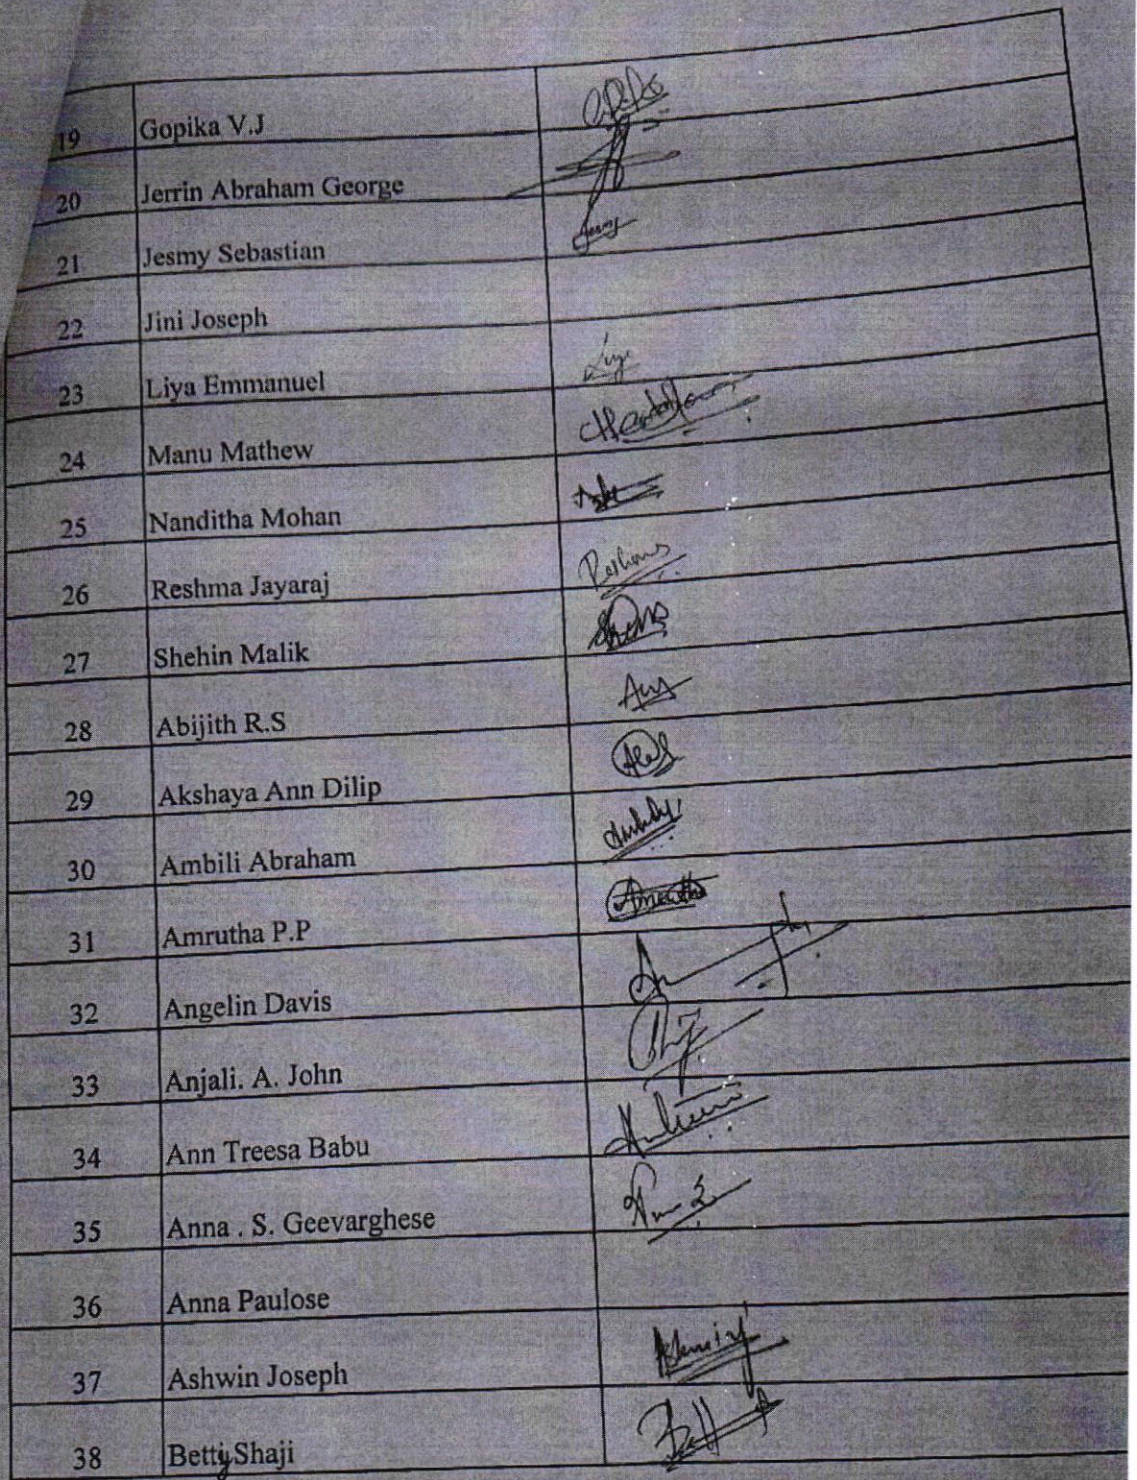 19 Gopika V.J
20 Jerrin Abraham George
21 Jesmy Sebastian Jesmy
22 Jini Joseph
23 Liya Emmanuel Liya
24 Manu Mathew
25 Nanditha Mohan
26 Reshma Jayaraj Reshma
27 Shehin Malik
28 Abijith R.S
29 Akshaya Ann Dilip
30 Ambili Abraham
31 Amrutha P.P Amrutha
32 Angelin Davis
33 Anjali. A. John
34 Ann Treesa Babu
35 Anna . S. Geevarghese
36 Anna Paulose
37 Ashwin Joseph
38 Betty Shaji